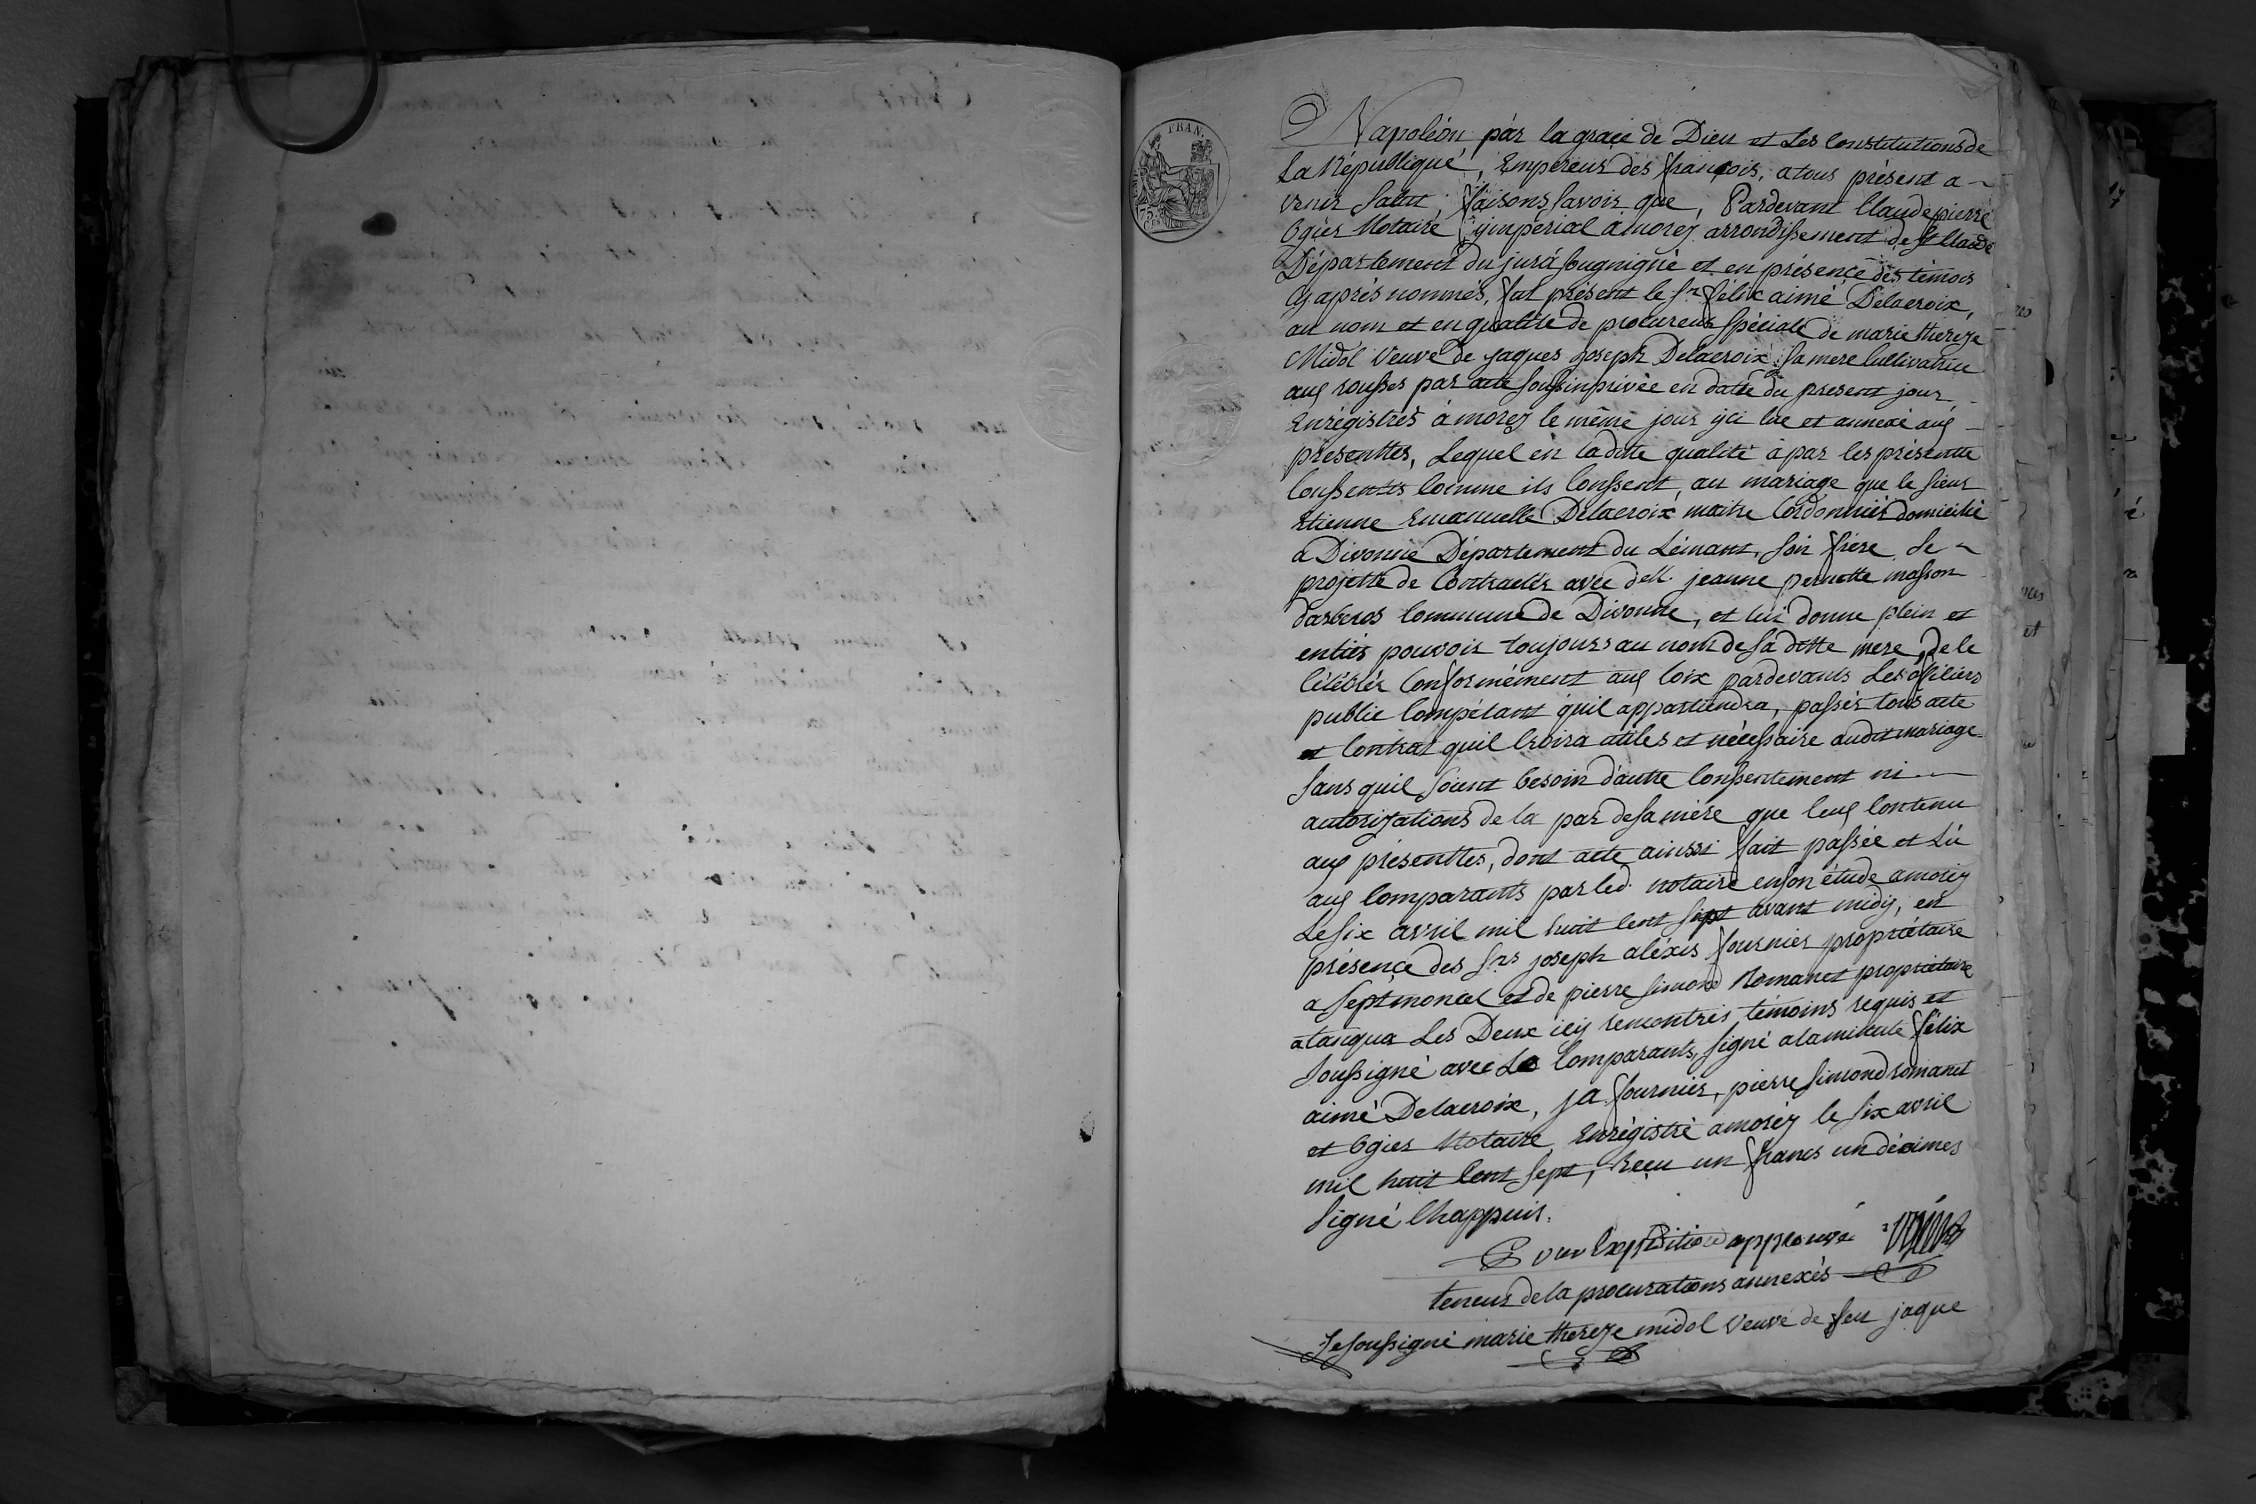 FRAN.
Napoléon, par la grace de Dieu et Les Constitutions de
La Républiqué, Empereur des francois, a tous présent a
venir Salut, faisons savoir que, Pardevant Claude pierre
Ogier Notairé ympérial à morez arrondissement de St Claude
Département du jura Sougnigné et en présence des témois
Cy après nommés, fut présent le Sr félix aimé Delacroix,
au nom et en qualité de procureur Spéciale de marie thereze
Midol Veuve de jaques joseph Delacroix Sa mere Cultivatrice
aux rousses par acte soussinprivée en datte du present jour
Enrégistrés à morez le même jour yci lue et annexé aux
présenttes, Lequel en laditte qualité à par les présentte
Consentis comme ils Conssent, au mariage que le sieur
Etienne Emanuelle Delacroix maitre Cordonnier domicilié
a Divonne Département du Lémant, son frere se
projette de Contracter avec delle. jeanne pernette masson
darberos commune de Divonne, et lui donne plein et
entier pouvoir toujours au nom de sa ditte mere, de le
Célébrer Conformément aux loix pardevants Les officiers
public Compétant quil appartiendra, passér tous acte
et Contrat quil Croira utiles et nécessaire audit mariage
sans quil soient besoin d'autre Conssentement ni
autorizations de la par de sa mére que ceux Contenu
aux présenttes, dont acte ainssi fait passée et Lù
aux Comparants par led. notaire en son étude a morez
Le six avril mil huit Cent sept avant midy, en
présence des Srs joseph aléxis fournier propriétaire
a Septmoncel et de pierre simond Romanet propriétaire
a tanqua Les Deux icy rencontrés témoins requis et
soussigné avec Le Comparants, signé a la minute félix
aimé Delacroix, j a fournier, pierre simond romanet
et Ogier Notaire, Enrégistré a moréz le six avril
mil huit Cent sept, Reçu un francs un décimes
signé Chappuis.
Pour Expédition approuvé
teneur de la procurations annexés
Je soussigné marie thereze midol veuve de feu jaque